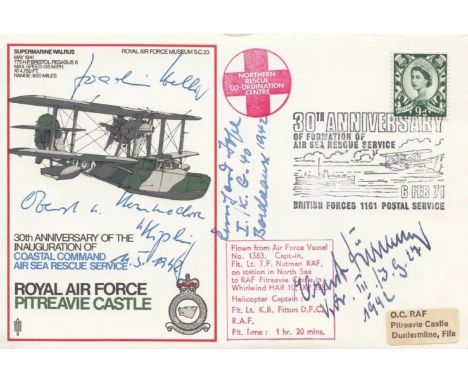 SUPERMARINE WALRUS
MAY 1941
775 H.P. BRISTOL PEGASUS 6
MAX. SPEED 135 M.P.H.
AT 4,750 FT.
RANGE: 600 MILES
ROYAL AIR FORCE MUSEUM S.C.23
30th ANNIVERSARY OF THE
INAUGURATION OF
COASTAL COMMAND
AIR SEA RESCUE SERVICE
ROYAL AIR FORCE
PITREAVIE CASTLE
NORTHERN
RESCUE
CO-ORDINATION
CENTRE
I./K.G. 40
Bordeaux 1942
9D
30TH ANNIVERSARY
OF FORMATION OF
AIR SEA RESCUE SERVICE
6 FEB 71
BRITISH FORCES 1161 POSTAL SERVICE
Flown from Air Force Vessel
No. 1363, Captain,
Flt. Lt. T.F. Nutman RAF,
on station in North Sea
to RAF Pitreavie Castle in
Whirlwind HAR 10
Helicopter Captain:
Flt. Lt. K.B. Fitton D.F.C.
R.A.F.
Flt. Time: 1 hr. 20 mins.
1942
O.C. RAF
Pitreavie Castle
Dunfermline, Fife